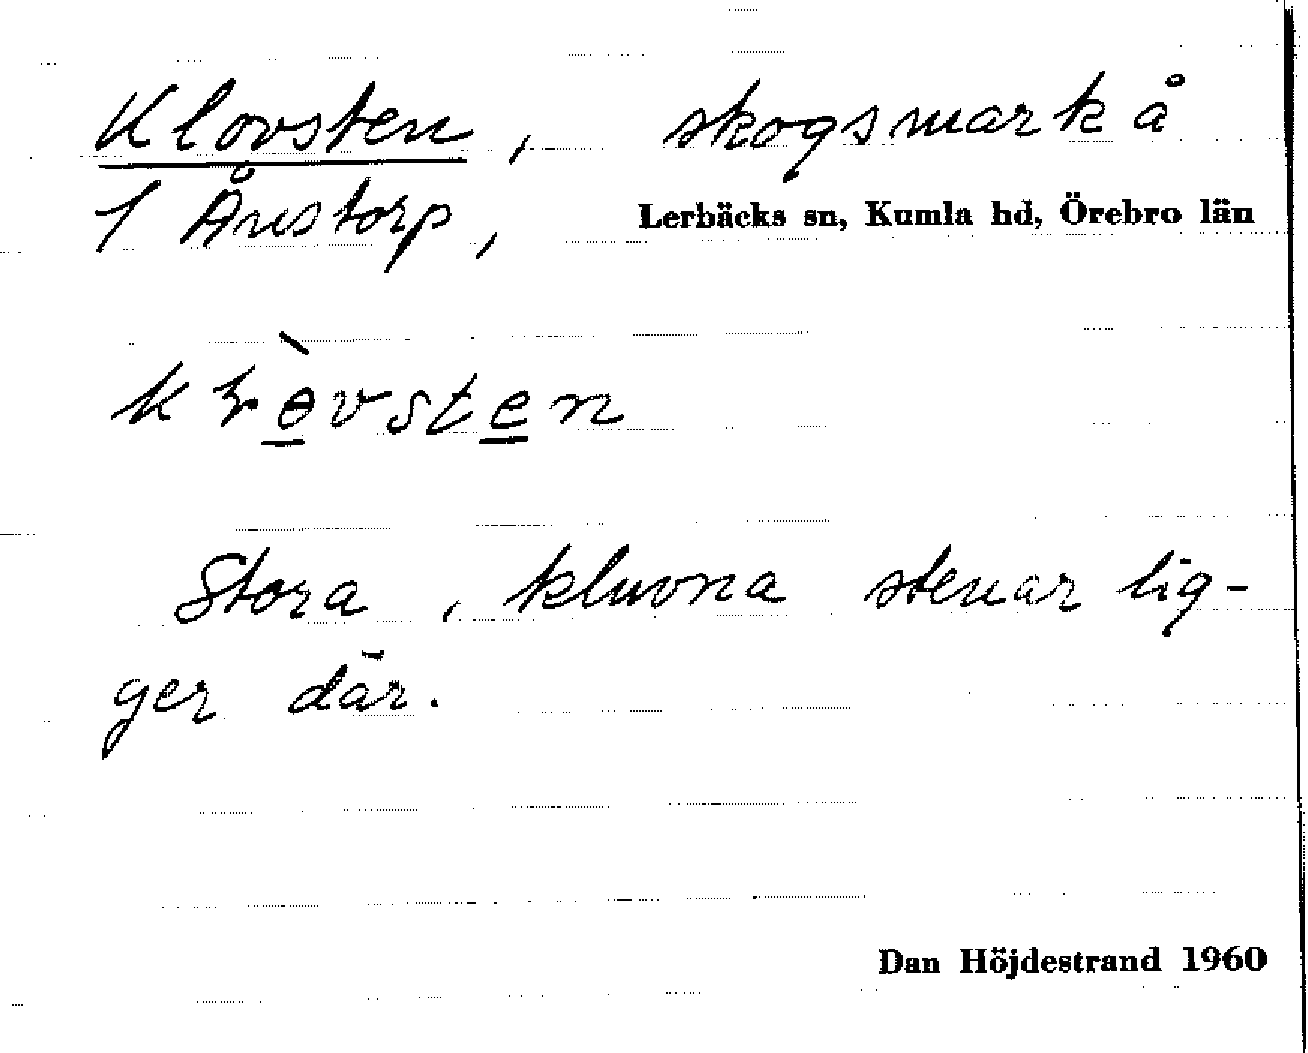 Klovsten, skogsmark å
1 Ånstorp, Lerbäcks sn, Kumla hd, Örebro län
Stora, kluvna stenar lig-
ger där.
Dan Höjdestrand 1960